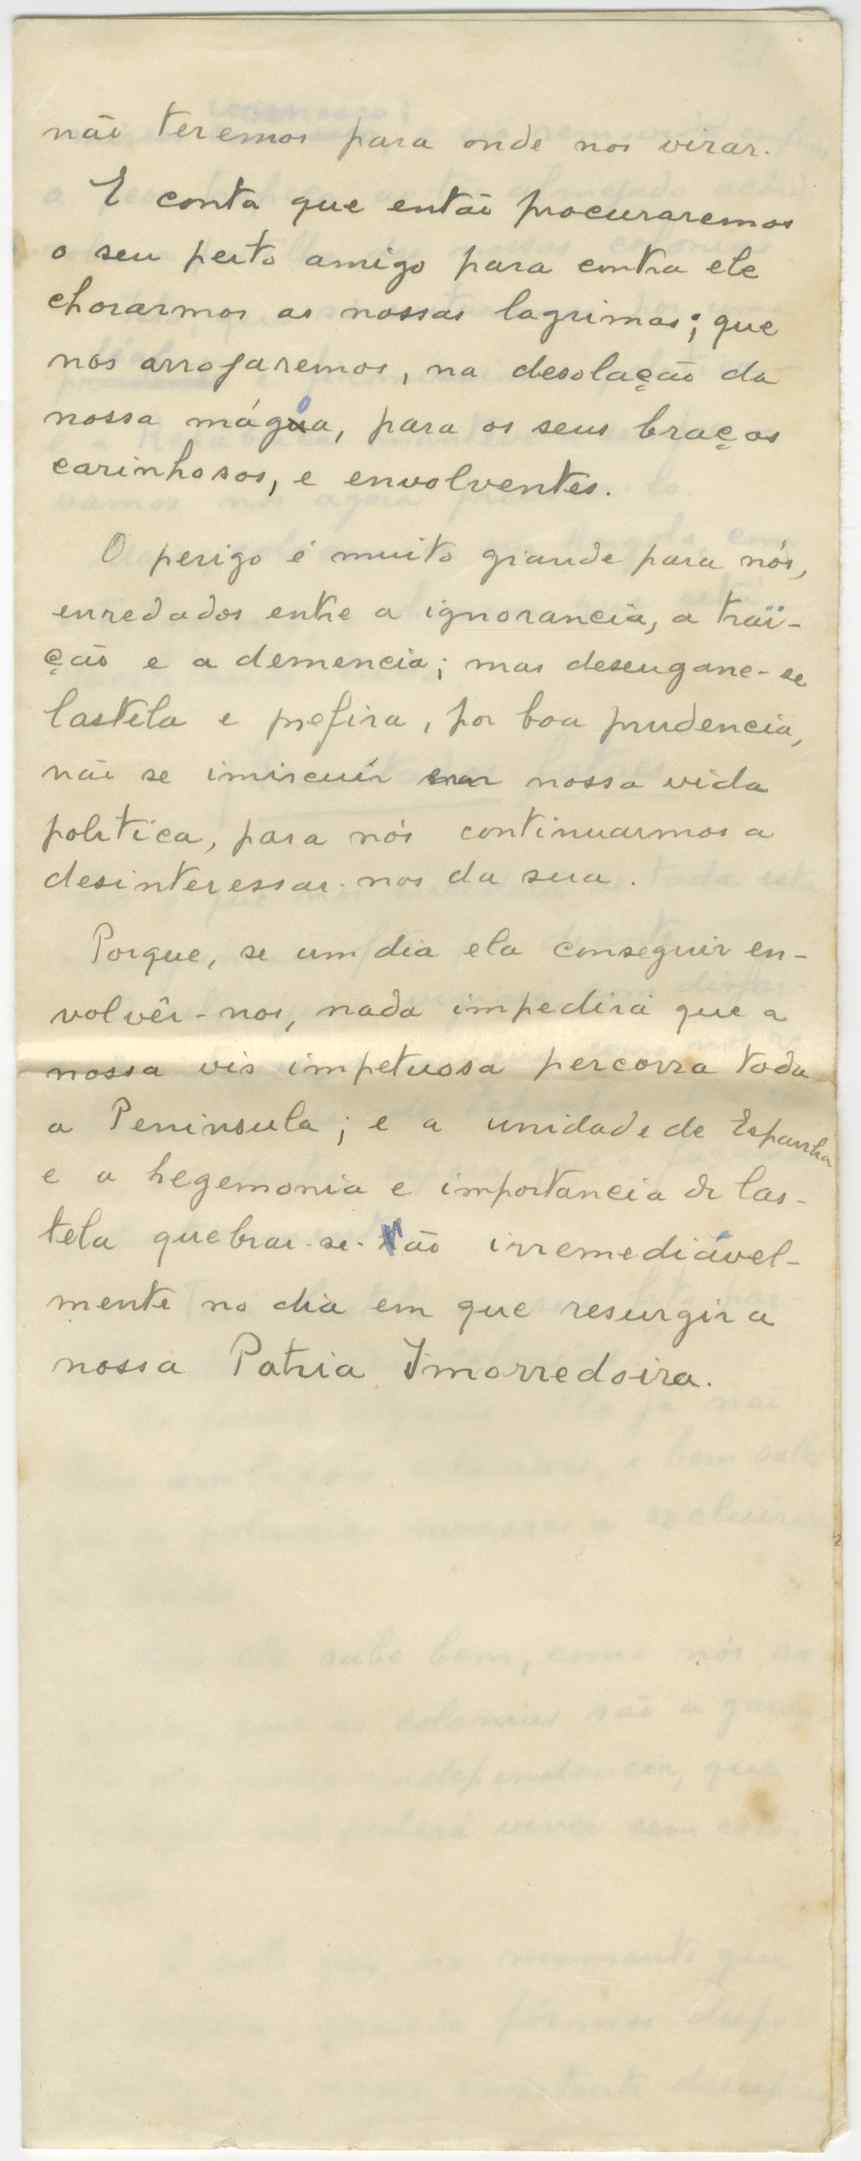 não teremos para onde nos virar.
E conta que então procuraremos
o seu peito amigo para contra ele
chorarmos as nossas lagrimas; que
nos arrojaremos, na desolação da
nossa mágoa, para os seus braços
carinhosos, e envolventes.
O perigo é muito grande para nós,
enredados entre a ignorancia, a traï-
ção e a demencia; mas desengane-se
Castela e prefira, por boa prudencia,
não se imiscuír na nossa vida
politica, para nós continuarmos a
desinteressar-nos da sua.
Porque, se um dia ela conseguir en-
volvêr-nos, nada impedirá que a
nossa vis impetuosa percorra toda
a Peninsula; e a unidade de Espanha
e a hegemonia e importancia de Cas-
tela quebrar-se-ão irremediável-
mente no dia em que resurgir a
nossa Patria Imorredoira.